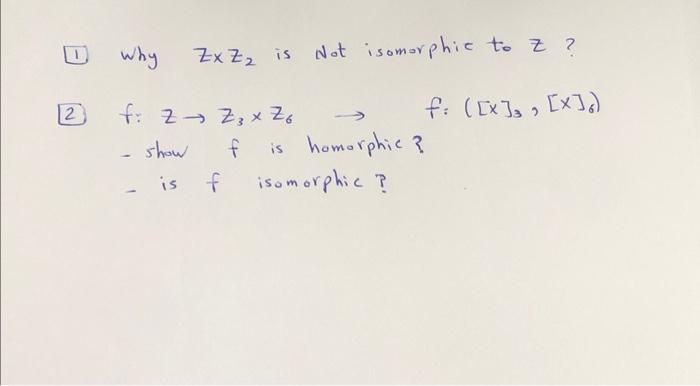 1 Why Z×Z₂ is Not isomorphic to Z ?
2 f: Z → Z₃ × Z₆ → f: ([x]₃ , [x]₆)
- show f is homorphic ?
- is f isomorphic ?